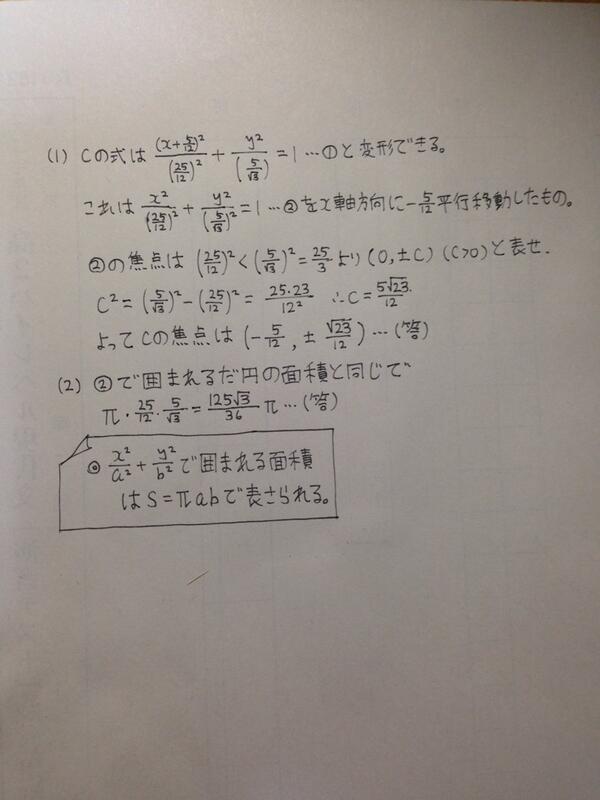 (1) Cの式は (x+5/12)²/(25/12)² + y²/(5/√3) = 1 …①と変形できる。
これは x²/(25/12)² + y²/(5/√3)² = 1 …②をx軸方向に-5/12平行移動したもの。
②の焦点は (25/12)² < (5/√3)² = 25/3 より (0, ±C) (C>0) と表せ.
C² = (5/√3)² - (25/12)² = 25·23/12² ∴C = 5√23/12.
よってCの焦点は (-5/12, ± √23/12) …(答)
(2) ②で囲まれるだ円の面積と同じで
π·25/12·5/√3 = 125√3/36 π …(答)
◎ x²/a² + y²/b² で囲まれる面積
はS=πabで表さられる。